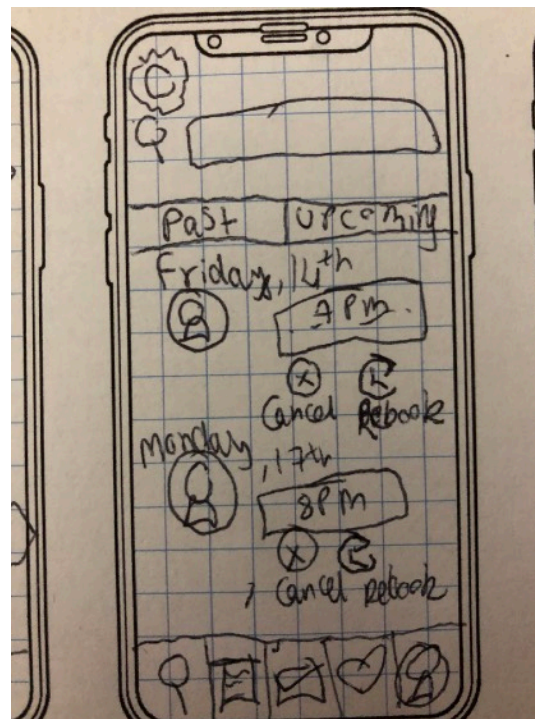 C
Past Upcoming
Friday, 14th
PM
Cancel Rebook
Monday, 17th
8PM
Cancel Rebook